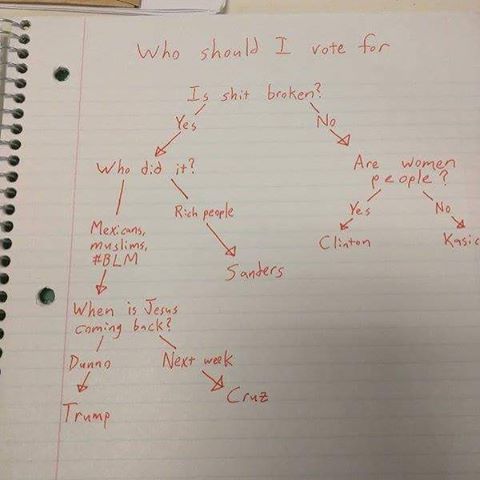 Who should I vote for
Is shit broken?
Yes
No
Who did it?
Are women
people?
Mexicans,
muslims,
#BLM
Rich people
Yes
No
Sanders
Clinton
Kasic
When is Jesus
coming back?
Dunno
Next week
Trump
Cruz